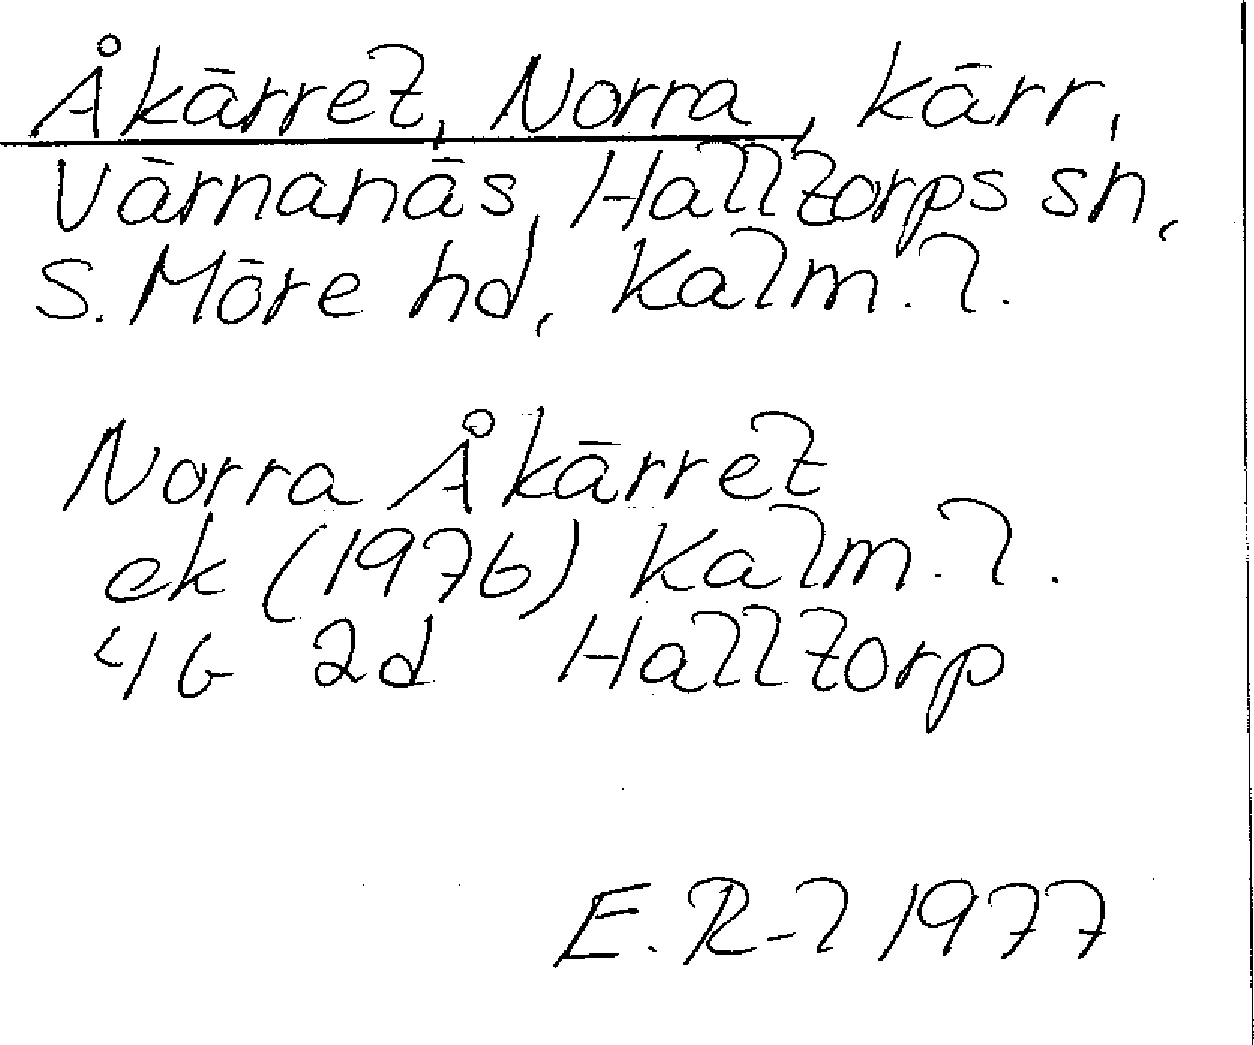 Åkärret, Norra, kärr,
Värnanäs, Halltorps sn,
S. Möre hd, Kalm. l.
Norra Åkärret
ek (1976) Kalm. l.
4G 2d Halltorp
E. R-l 1977